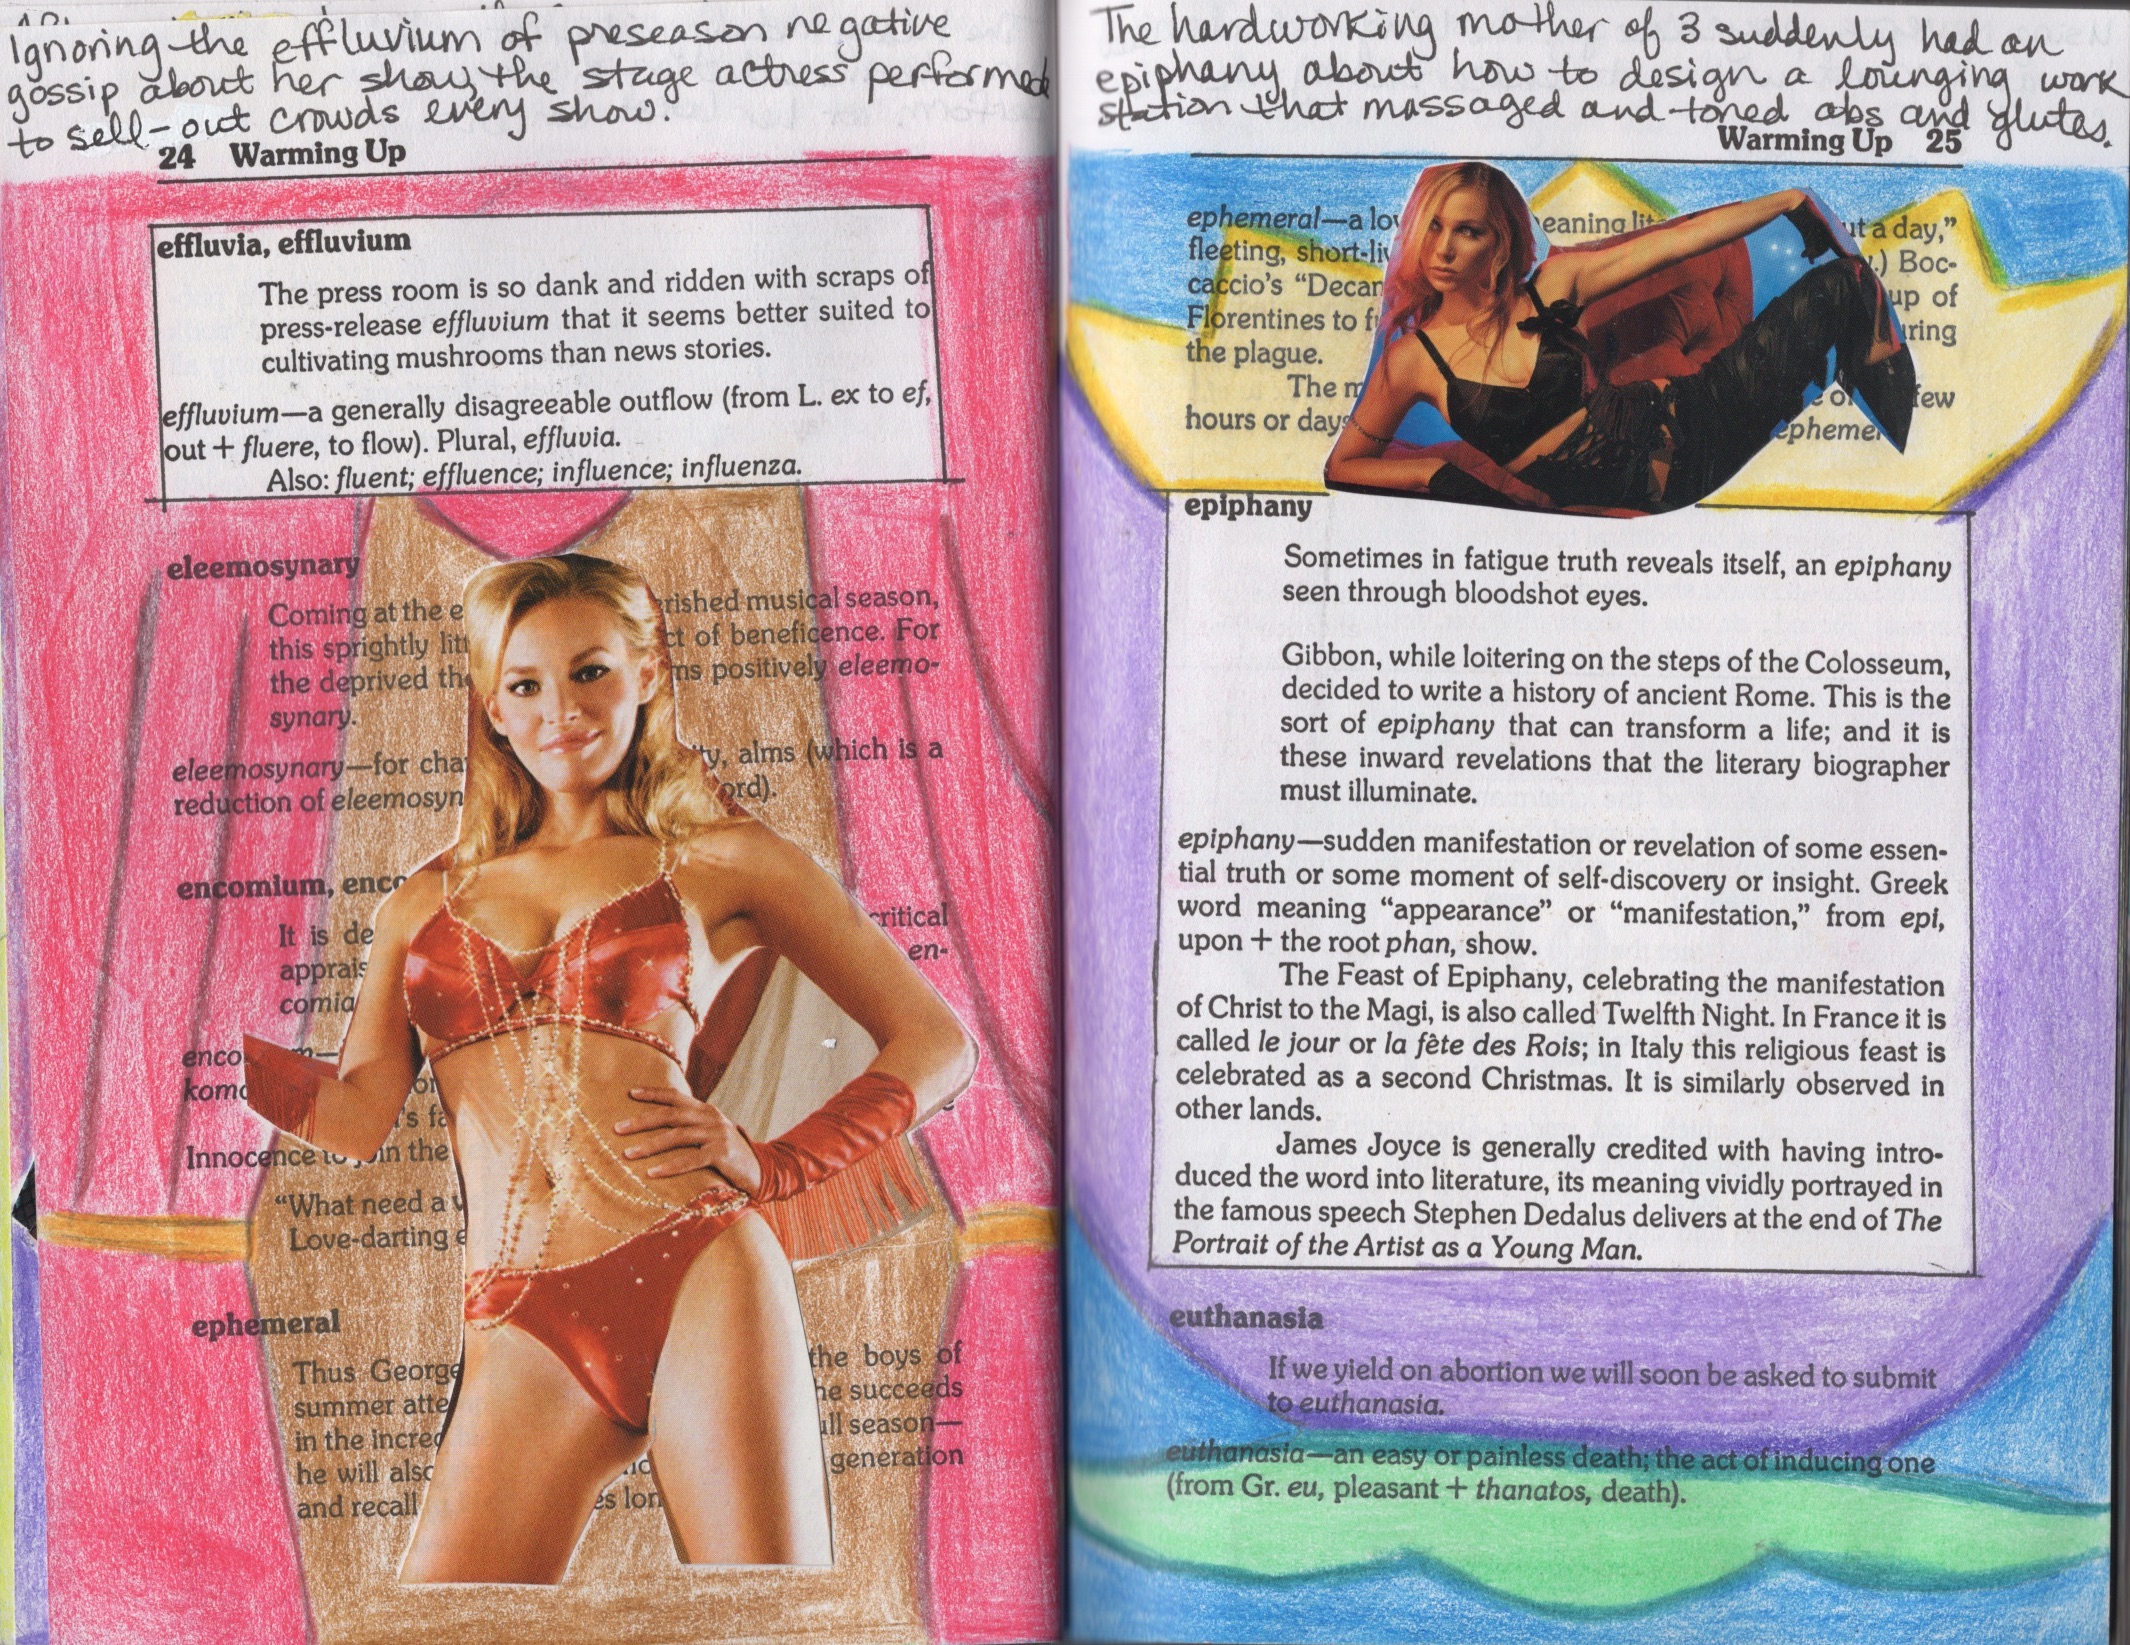 Ignoring the effluvium of preseason negative
gossip about her show, the stage actress performed
to sell-out crowds every show.
24 Warming Up
effluvia, effluvium
The press room is so dank and ridden with scraps of
press-release effluvium that it seems better suited to
cultivating mushrooms than news stories.
effluvium—a generally disagreeable outflow (from L. ex to ef,
out + fluere, to flow). Plural, effluvia.
Also: fluent; effluence; influence; influenza.
eleemosynary
Coming at the e rished musical season,
this sprightly litt ct of beneficence. For
the deprived th ns positively eleemo-
synary.
eleemosynary—for cha ty, alms (which is a
reduction of eleemosyn ord).
encomium, enco
It is de critical
apprais en-
comia
enco m—
komo or
's fa
Innocence to join the
"What need a v
Love-darting e
ephemeral
Thus George the boys of
summer atte he succeeds
in the incred ull season—
he will also generation
and recall es lon
The hardworking mother of 3 suddenly had an
epiphany about how to design a lounging work
station that massaged and toned abs and glutes.
Warming Up 25
ephemeral—a lov eaning lit ut a day,"
fleeting, short-liv .) Boc-
caccio's "Decam up of
Florentines to f uring
the plague.
The m few
hours or days ephemer
epiphany
Sometimes in fatigue truth reveals itself, an epiphany
seen through bloodshot eyes.
Gibbon, while loitering on the steps of the Colosseum,
decided to write a history of ancient Rome. This is the
sort of epiphany that can transform a life; and it is
these inward revelations that the literary biographer
must illuminate.
epiphany—sudden manifestation or revelation of some essen-
tial truth or some moment of self-discovery or insight. Greek
word meaning "appearance" or "manifestation," from epi,
upon + the root phan, show.
The Feast of Epiphany, celebrating the manifestation
of Christ to the Magi, is also called Twelfth Night. In France it is
called le jour or la fête des Rois; in Italy this religious feast is
celebrated as a second Christmas. It is similarly observed in
other lands.
James Joyce is generally credited with having intro-
duced the word into literature, its meaning vividly portrayed in
the famous speech Stephen Dedalus delivers at the end of The
Portrait of the Artist as a Young Man.
euthanasia
If we yield on abortion we will soon be asked to submit
to euthanasia.
euthanasia—an easy or painless death; the act of inducing one
(from Gr. eu, pleasant + thanatos, death).